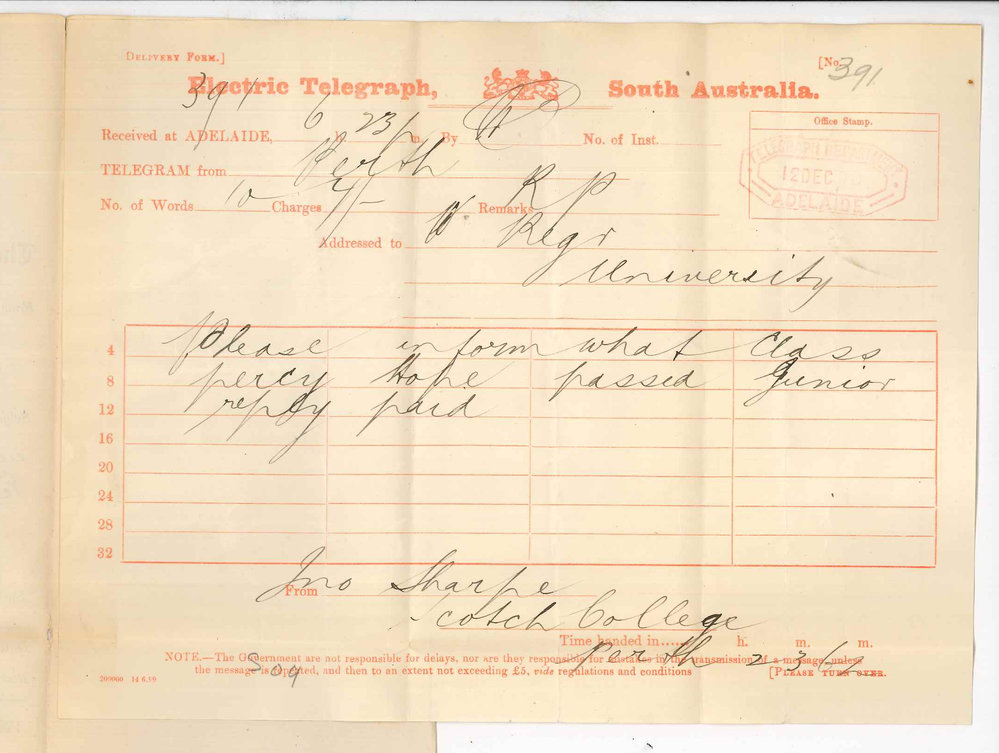 DELIVERY FORM.]
[No. 391
Electric Telegraph, South Australia.
391
Received at ADELAIDE, 6 h. 23 p m. By No. of Inst.
Office Stamp.
TELEGRAPH DEPARTMENT
12 DEC
ADELAIDE
TELEGRAM from Perth
No. of Words 10 Charges Remarks R P
Addressed to Regr
University
4 Please inform what class
8 percy Hope passed Junior
12 reply paid
16
20
24
28
32
From Jno Sharpe
Scotch College
Time handed in h. m. m.
Perth
NOTE.—The Government are not responsible for delays, nor are they responsible for mistakes in the transmission of a message unless
the message is repeated, and then to an extent not exceeding £5, vide regulations and conditions [PLEASE TURN OVER.
S 09
200000 14 6.99